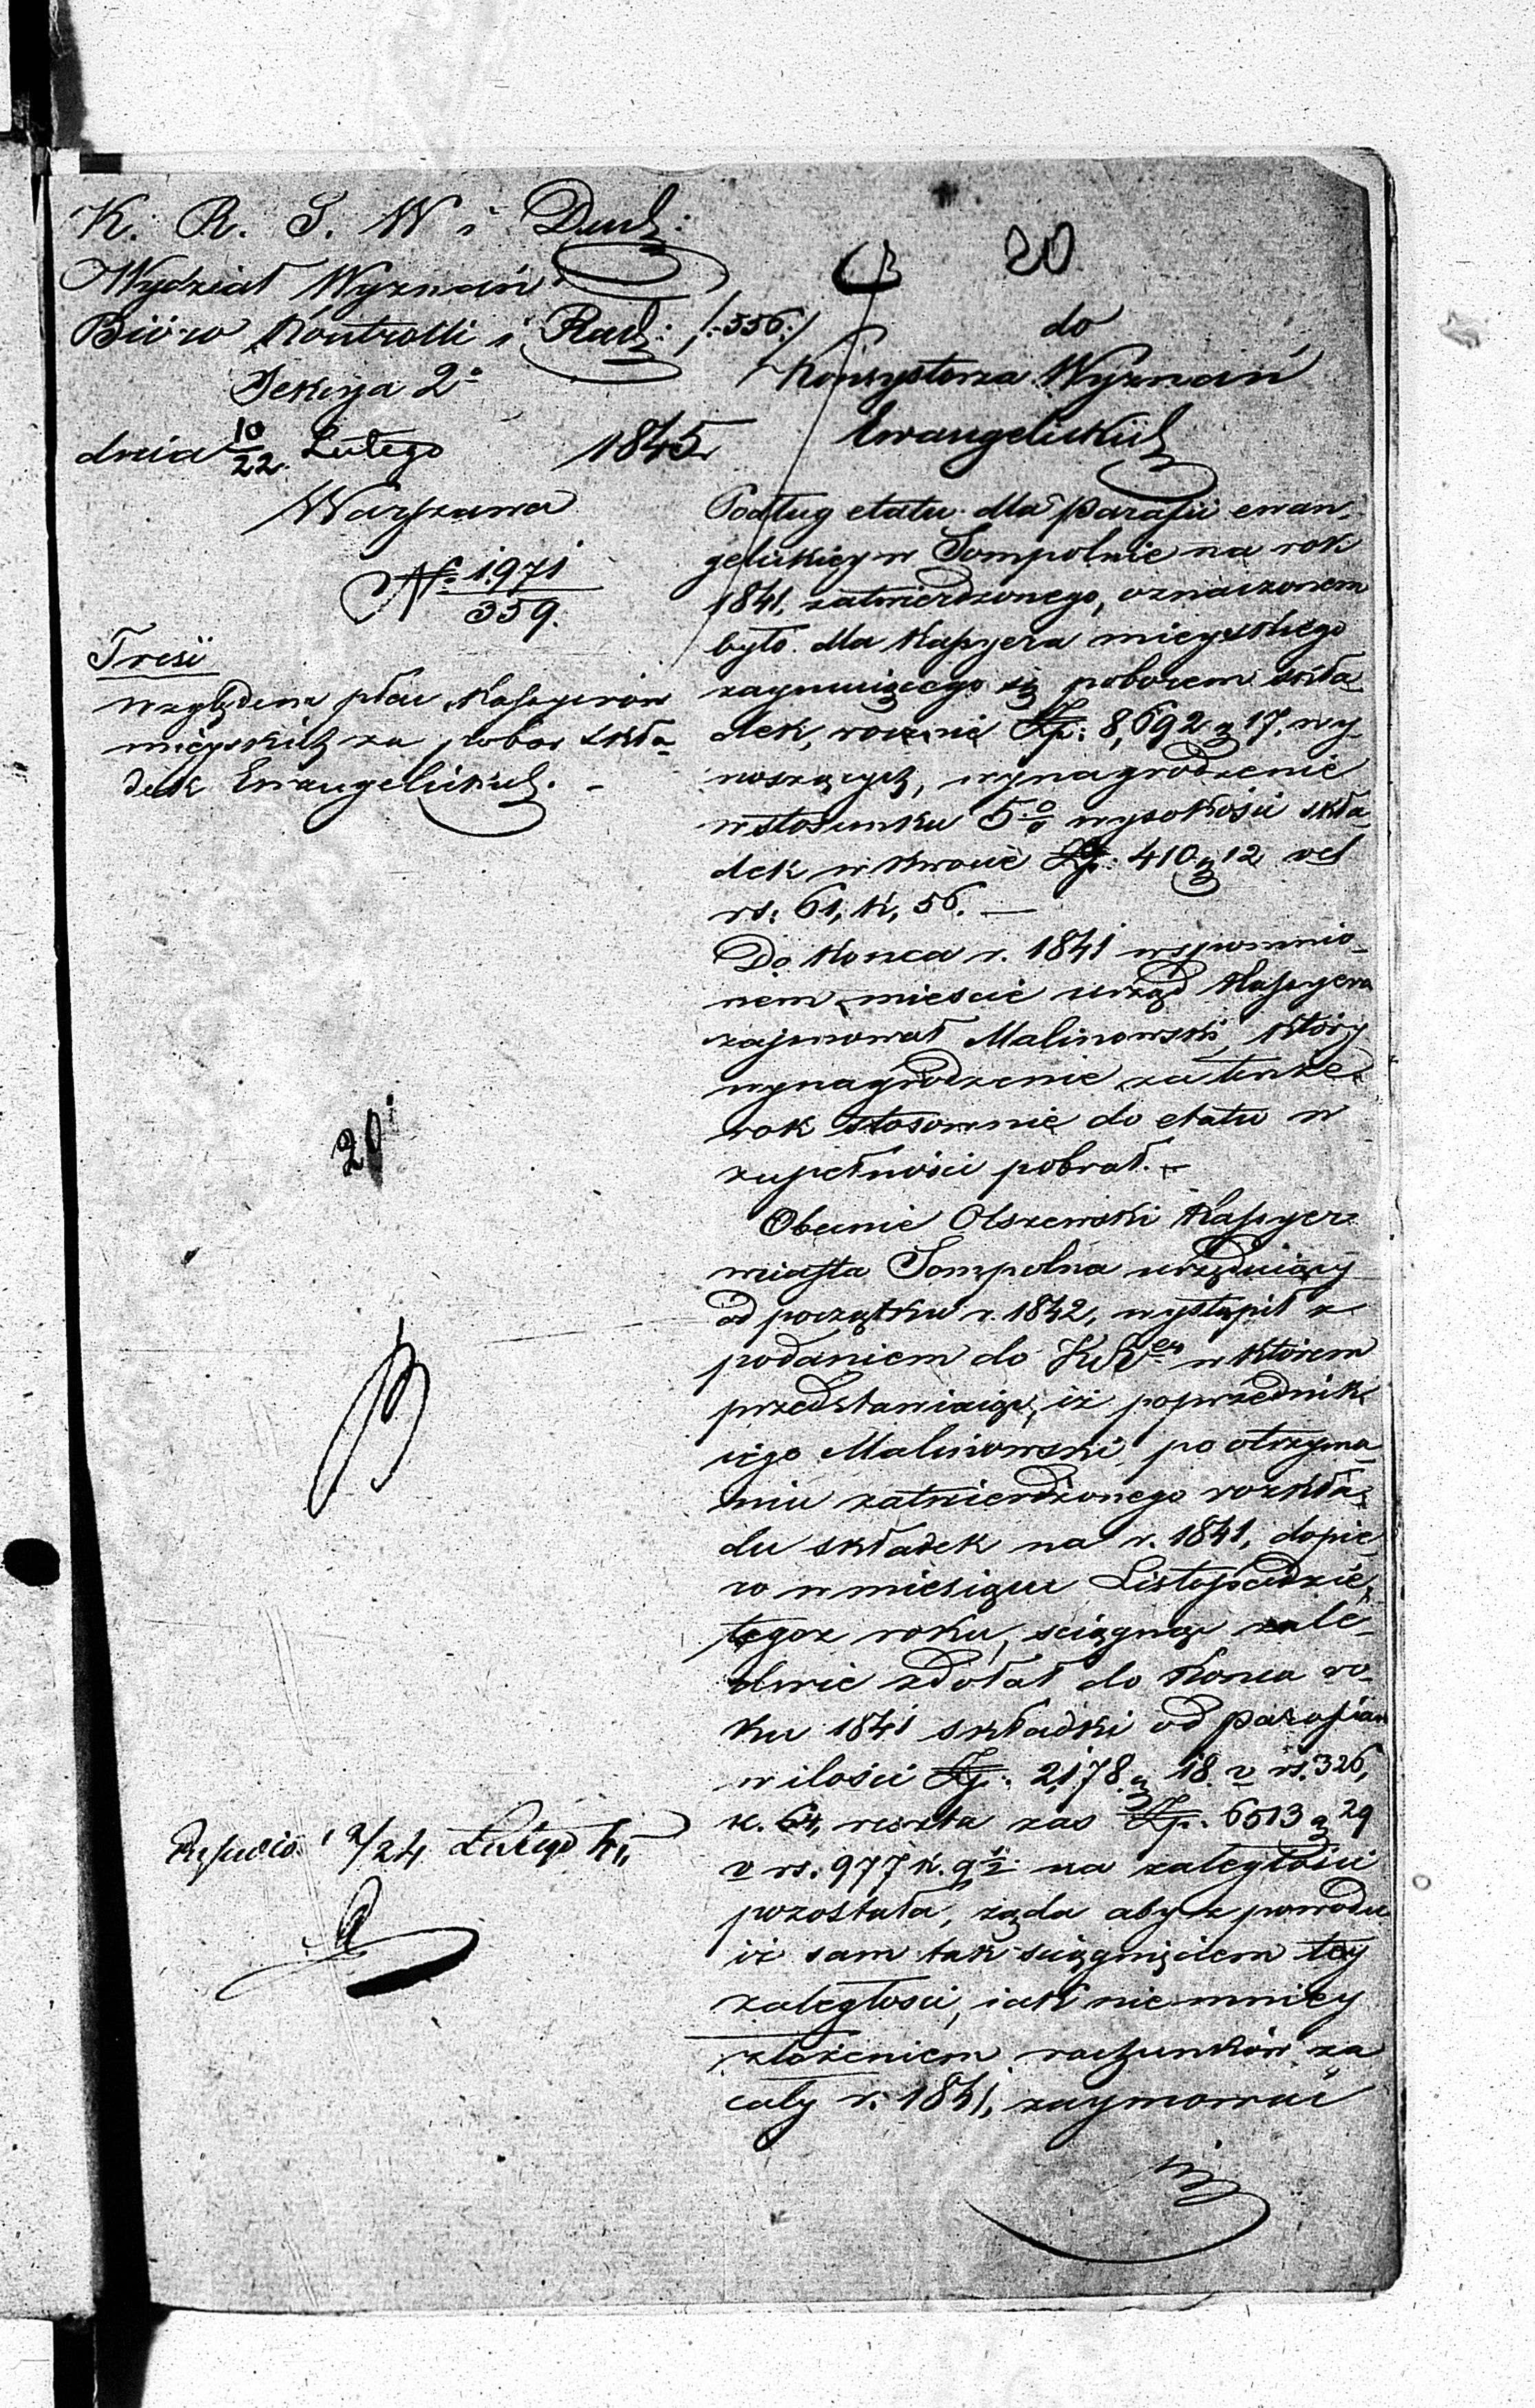 K. R. S. W. i Duch:
Wydział Wyznań
Biuro Kontrolli i Rach: /:556:/
Sekcya 2a
dnia 10/22 Lutego 1845
Warszawa
No 1971/359.
Treść
względem płac Kassyerów
mieyskich za pobor skła-
dek Ewangelickich. -
20
Lutego
20
do
Konsystorza Wyznań
Ewangelickich
Podług etatu dla parafii ewan-
gelickiey w Sompolnie na rok
1841, zatwierdzonego, oznaczonem
było dla Kassyera mieyskiego
zaymuiącego się poborem skła-
dek, rocznie Zp: 8,692 g 17, wy-
noszących, wynagrodzenie
w stosunku 5% wysokości skła-
dek w kwocie Zp. 410 g 12 vel
rs: 61, k, 56. —
Do konca r. 1841 wspomnio-
nem miescie urząd Kassyera
zajmował Malinowski, który
wynagrodzenie za tenże
rok stosownie do etatu w
zupełności pobrał. —
Obecnie Olszewski Kassyer
miasta Sompolna urzęduiący
od początku r. 1842, wystąpił z
podaniem do w którem
przedstawiaiąc, iż poprzednik
iego Malinowski po otrzyma-
niu zatwierdzonego rozkła-
du składek na r. 1841, dopie-
ro w miesiącu Listopadzie
tegoż roku, sciągnąć zale-
dwie zdołał do konca ro-
ku 1841 składki od parafian
w ilości Zp. 2,178 g 18 v rs. 326,
k. 64, reszta zas Zp. 6513 g 29
v rs. 977 k. 9½ na zaległości
pozostała, żąda aby z powodu
iż sam tak sciągnięciem tey
zaległosci, iak niemniey
złożeniem rachunków za
cały r. 1841, zaymować